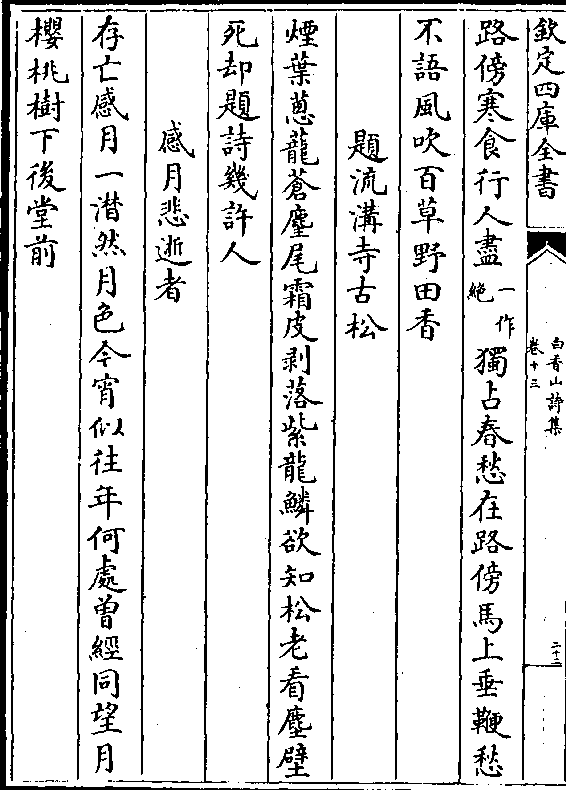 欽定四庫全書
白香山詩集
卷十三
二十二
路傍寒食行人盡一作絶獨占春愁在路傍馬上垂鞭愁
不語風吹百草野田香
題流溝寺古松
煙葉葱蘢蒼麈尾霜皮剥落紫龍鱗欲知松老看塵壁
死却題詩幾許人
感月悲逝者
存亡感月一潸然月色今宵似往年何處曾經同望月
櫻桃樹下後堂前